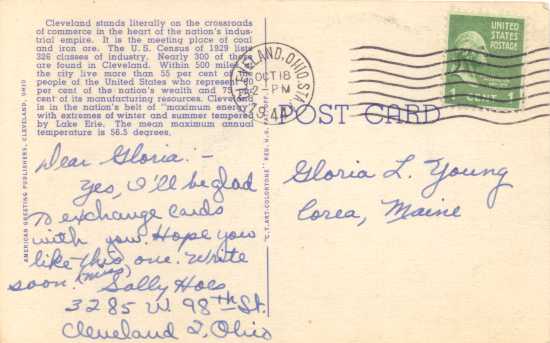 Cleveland stands literally on the crossroads
of commerce in the heart of the nation's indus-
trial empire. It is the meeting place of coal
and iron ore. The U.S. Census of 1929 lists
326 classes of industry. Nearly 300 of these
are found in Cleveland. Within 500 miles of
the city live more than 55 per cent of the
people of the United States who represent
per cent of the nation's wealth and 75 per
cent of its manufacturing resources. Cleveland
is in the nation's belt of "maximum energy"
with extremes of winter and summer tempered
by Lake Erie. The mean maximum annual
temperature is 56.5 degrees.
AMERICAN GREETING PUBLISHERS, CLEVELAND, OHIO
Dear Gloria:-
Yes, I'll be glad
to exchange cards
with you. Hope you
like this one. Write
soon. (Miss) Sally Hoes
3285 W 98th St.
Cleveland 2, Ohio
"C.T. ART-COLORTONE" REG. U.S.
CLEVELAND, OHIO STA.
OCT 18
2-PM
POST CARD
UNITED
STATES
POSTAGE
1 CENT 1
Gloria L. Young
Corea, Maine